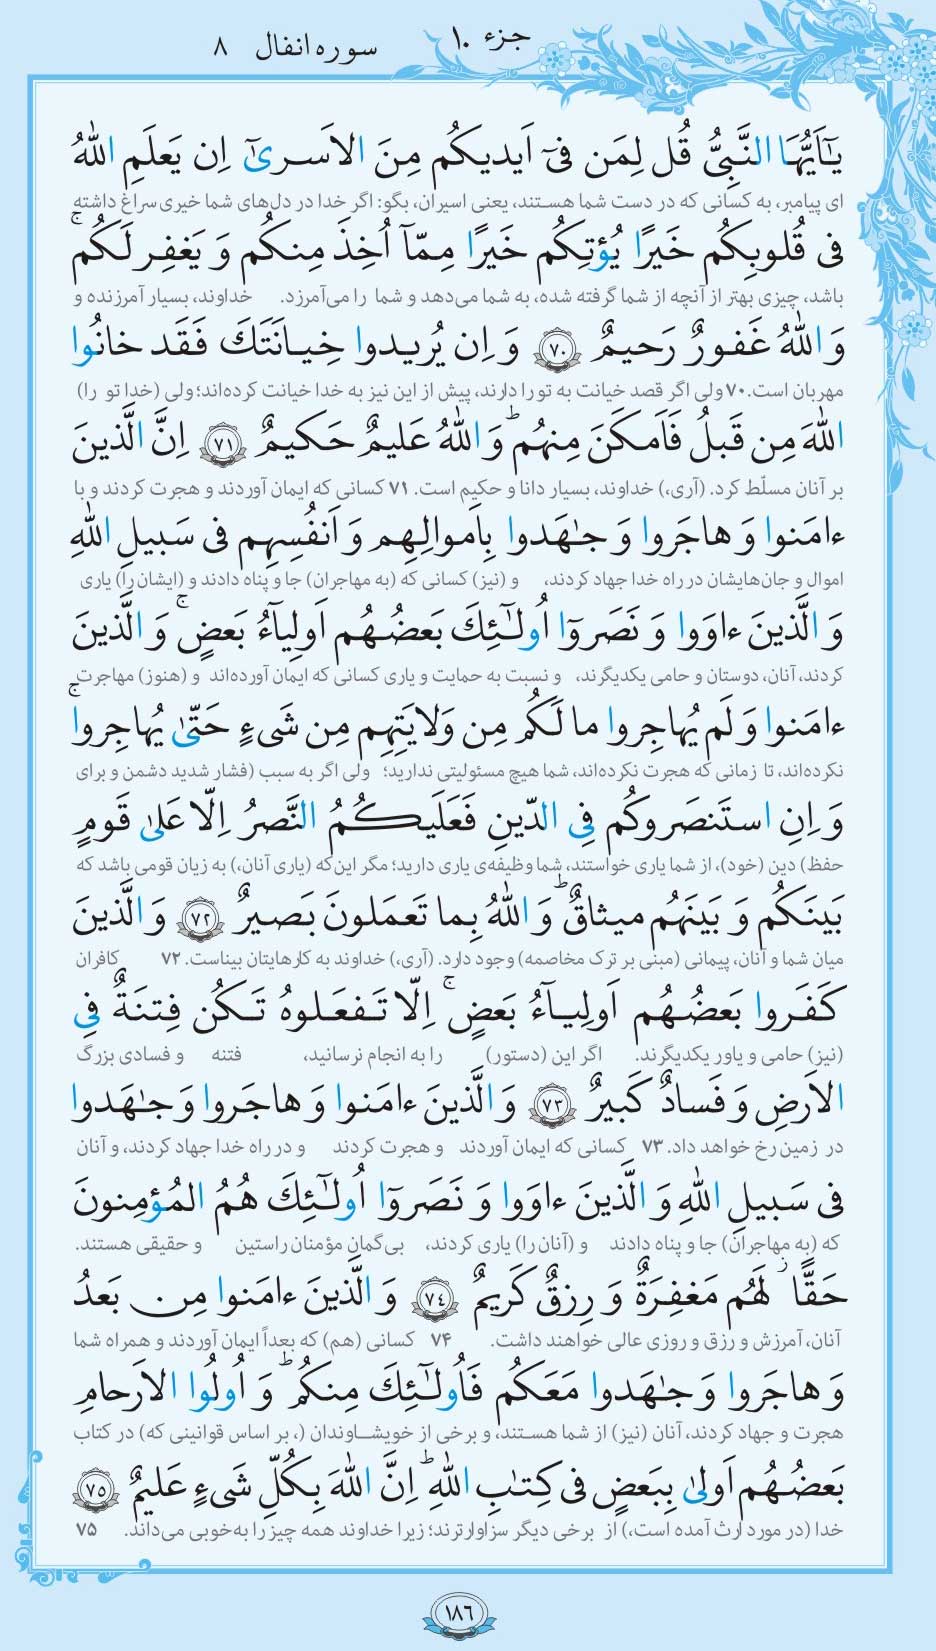 جزء ۱۰
سوره انفال ۸
يَٰٓأَيُّهَا النَّبِىُّ قُل لِمَن فىٓ اَيديكُم مِنَ الاَسرىٰٓ اِن يَعلَمِ اللّٰهُ
ای پیامبر، به کسانی که در دست شما هستند، یعنی اسیران، بگو: اگر خدا در دل‌های شما خیری سراغ داشته
فى قُلوبِكُم خَيرًا يُؤتِكُم خَيرًا مِمّآ اُخِذَ مِنكُم وَ يَغفِر لَكُم ۚ
باشد، چیزی بهتر از آنچه از شما گرفته شده، به شما می‌دهد و شما را می‌آمرزد. خداوند، بسیار آمرزنده و
وَ اللّٰهُ غَفورٌ رَحيمٌ ﴿۷۰﴾ وَ اِن يُريدوا خِيانَتَكَ فَقَد خانُوا
مهربان است. ۷۰ ولی اگر قصد خیانت به تو را دارند، پیش از این نیز به خدا خیانت کرده‌اند؛ ولی (خدا تو را)
اللّٰهَ مِن قَبلُ فَاَمكَنَ مِنهُم ؕ وَ اللّٰهُ عَليمٌ حَكيمٌ ﴿۷۱﴾ اِنَّ الَّذينَ
بر آنان مسلّط کرد. (آری،) خداوند، بسیار دانا و حکیم است. ۷۱ کسانی که ایمان آوردند و هجرت کردند و با
ءامَنوا وَ هاجَروا وَ جٰهَدوا بِاَموالِهِم وَ اَنفُسِهِم فى سَبيلِ اللّٰهِ
اموال و جان‌هایشان در راه خدا جهاد کردند، و (نیز) کسانی که (به مهاجران) جا و پناه دادند و (ایشان را) یاری
وَ الَّذينَ ءاوَوا وَ نَصَروٓا اُولٰٓئِكَ بَعضُهُم اَولِيآءُ بَعضٍ ۚ وَ الَّذينَ
کردند، آنان، دوستان و حامی یکدیگرند، و نسبت به حمایت و یاری کسانی که ایمان آورده‌اند و (هنوز) مهاجرت
ءامَنوا وَ لَم يُهاجِروا ما لَكُم مِن وَلايَتِهِم مِن شَىءٍ حَتّىٰ يُهاجِروا ۚ
نکرده‌اند، تا زمانی که هجرت نکرده‌اند، شما هیچ مسئولیتی ندارید؛ ولی اگر به سبب (فشار شدید دشمن و برای
وَ اِنِ استَنصَروكُم فِى الدّينِ فَعَلَيكُمُ النَّصرُ اِلّا عَلىٰ قَومٍ
حفظ) دین (خود)، از شما یاری خواستند، شما وظیفه‌ی یاری دارید؛ مگر این‌که (یاری آنان،) به زیان قومی باشد که
بَينَكُم وَ بَينَهُم ميثاقٌ ؕ وَ اللّٰهُ بِما تَعمَلونَ بَصيرٌ ﴿۷۲﴾ وَ الَّذينَ
میان شما و آنان، پیمانی (مبنی بر ترک مخاصمه) وجود دارد. (آری،) خداوند به کارهایتان بیناست. ۷۲ کافران
كَفَروا بَعضُهُم اَولِيآءُ بَعضٍ ۚ اِلّا تَفعَلوهُ تَكُن فِتنَةٌ فِى
(نیز) حامی و یاور یکدیگرند. اگر این (دستور) را به انجام نرسانید، فتنه و فسادی بزرگ
الاَرضِ وَ فَسادٌ كَبيرٌ ﴿۷۳﴾ وَ الَّذينَ ءامَنوا وَ هاجَروا وَ جٰهَدوا
در زمین رخ خواهد داد. ۷۳ کسانی که ایمان آوردند و هجرت کردند و در راه خدا جهاد کردند، و آنان
فى سَبيلِ اللّٰهِ وَ الَّذينَ ءاوَوا وَ نَصَروٓا اُولٰٓئِكَ هُمُ المُؤمِنونَ
که (به مهاجران) جا و پناه دادند و (آنان را) یاری کردند، بی‌گمان مؤمنان راستین و حقیقی هستند.
حَقًّا ۚ لَهُم مَغفِرَةٌ وَ رِزقٌ كَريمٌ ﴿۷۴﴾ وَ الَّذينَ ءامَنوا مِن بَعدُ
آنان، آمرزش و رزق و روزی عالی خواهند داشت. ۷۴ کسانی (هم) که بعداً ایمان آوردند و همراه شما
وَ هاجَروا وَ جٰهَدوا مَعَكُم فَاُولٰٓئِكَ مِنكُم ؕ وَ اُولُوا الاَرحامِ
هجرت و جهاد کردند، آنان (نیز) از شما هستند، و برخی از خویشاوندان (، بر اساس قوانینی که) در کتاب
بَعضُهُم اَولىٰ بِبَعضٍ فى كِتٰبِ اللّٰهِ ؕ اِنَّ اللّٰهَ بِكُلِّ شَىءٍ عَليمٌ ﴿۷۵﴾
خدا (در مورد ارث آمده است،) از برخی دیگر سزاوارترند؛ زیرا خداوند همه چیز را به‌خوبی می‌داند. ۷۵
۱۸۶